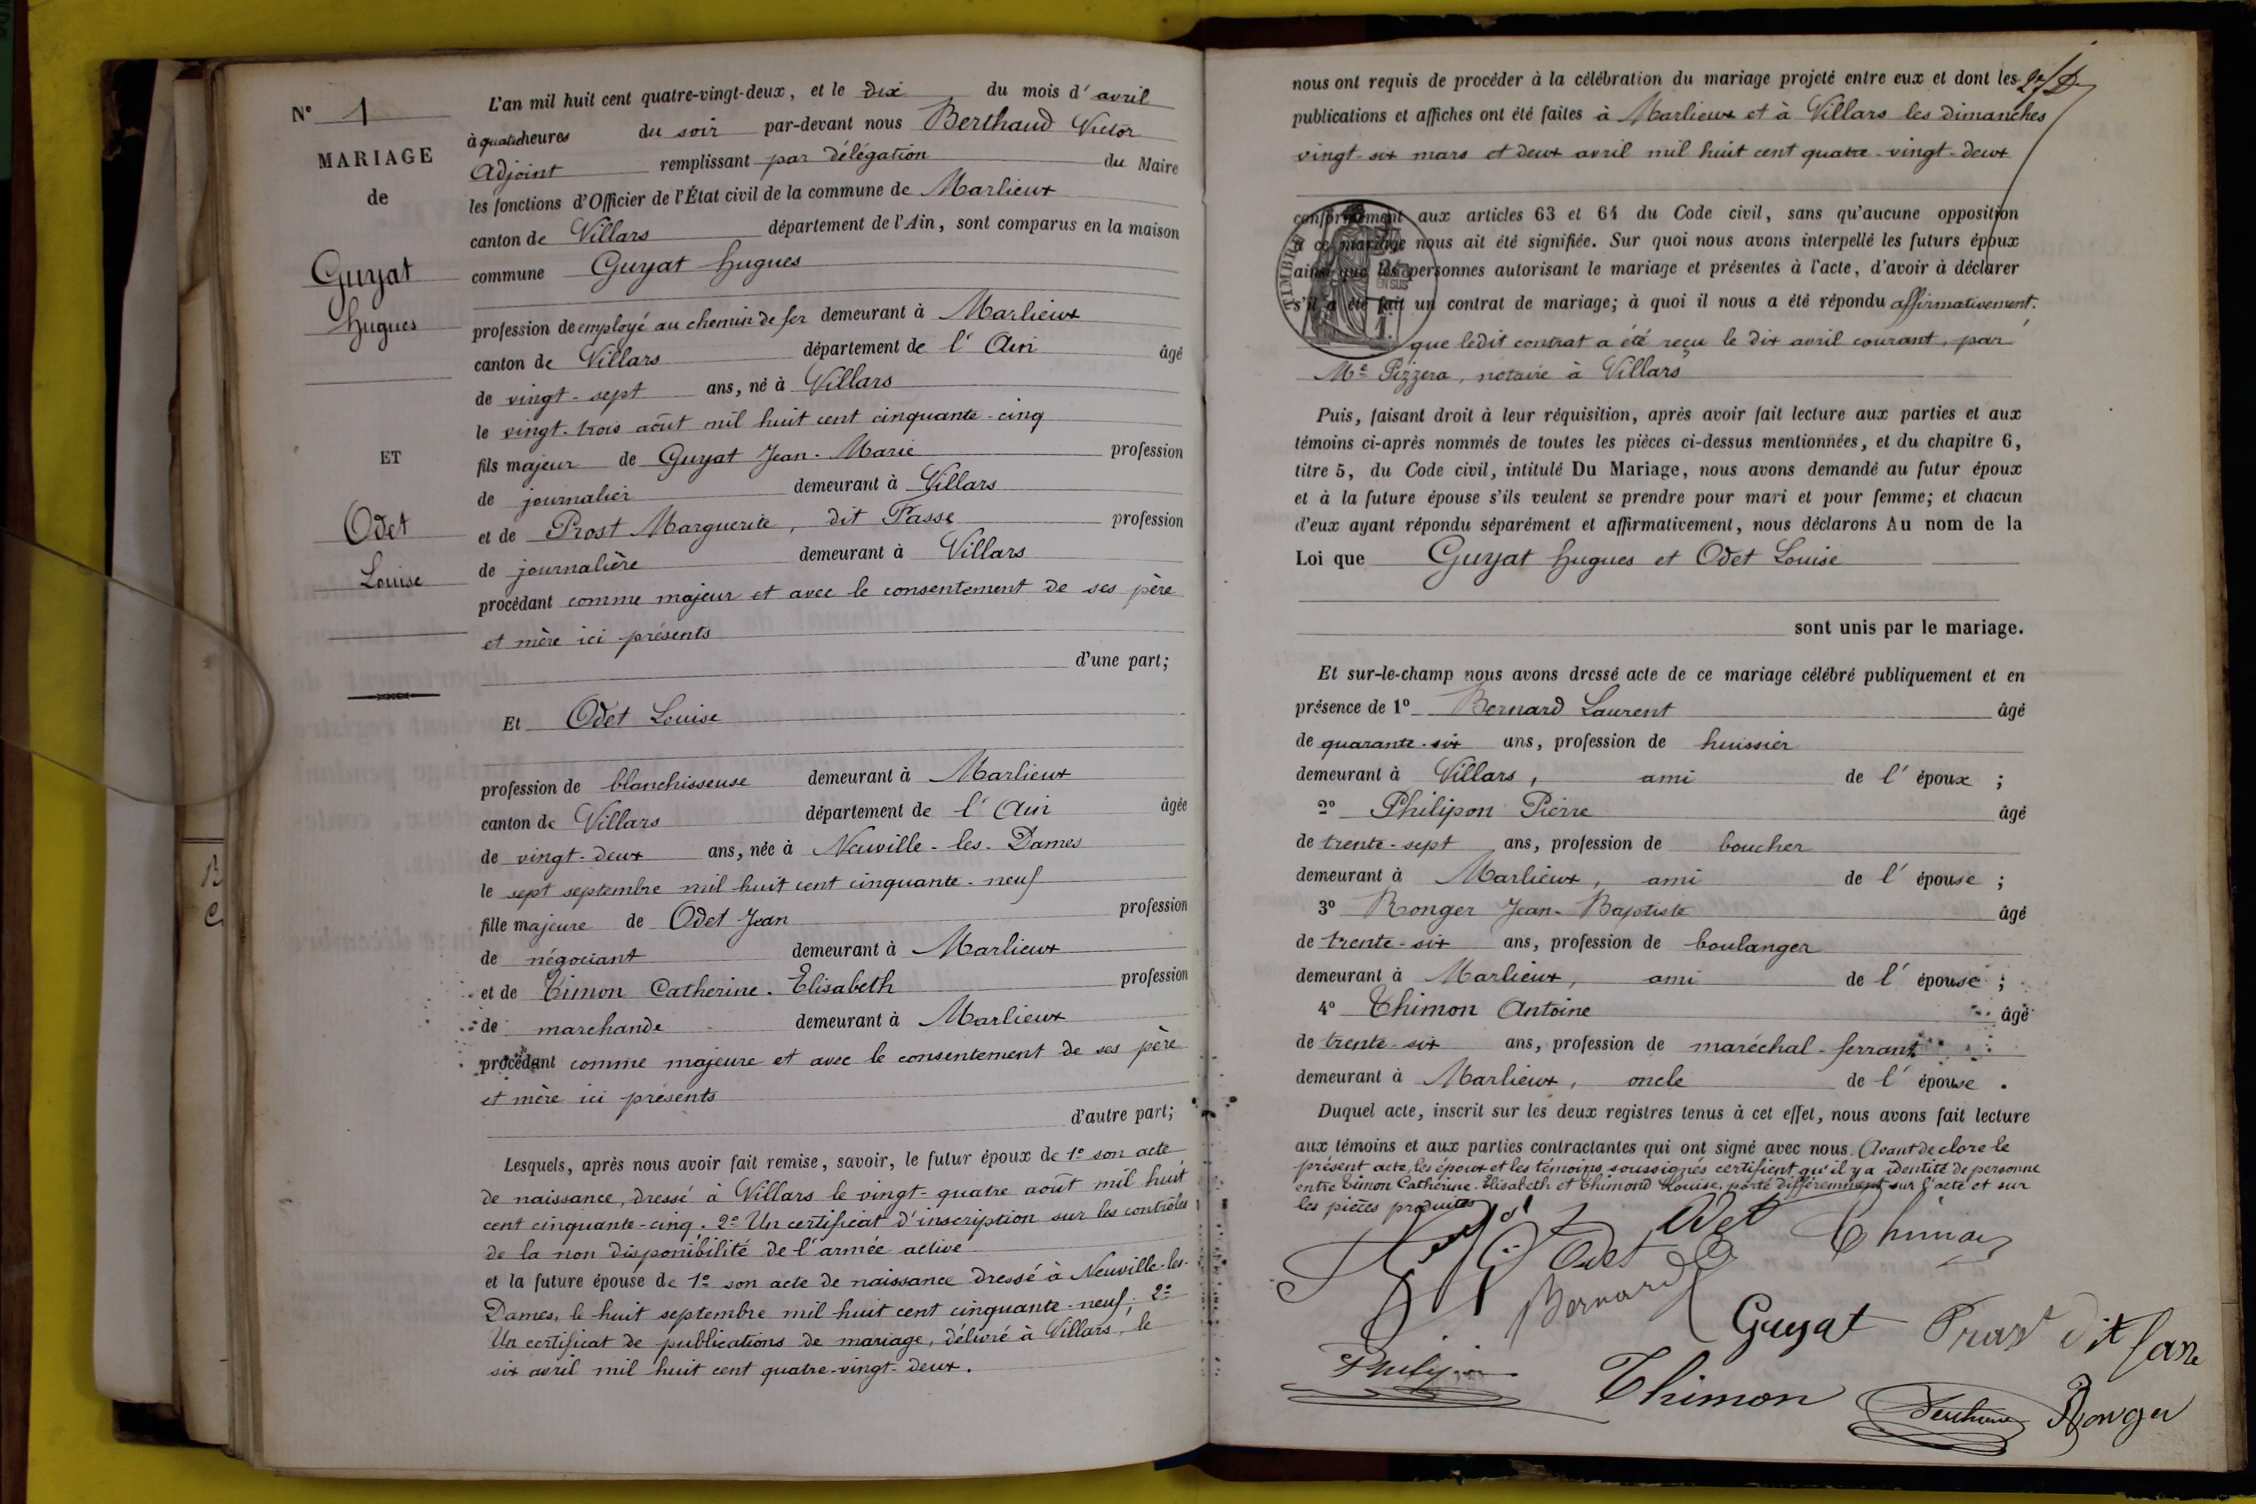 N° 1
MARIAGE
de
Guyat
Hugues
ET
Odet
Louise
L'an mil huit cent quatre-vingt-deux, et le dix du mois d'avril
à quatre heures du soir par-devant nous Berthaud Victor
Adjoint remplissant par délégation du Maire
les fonctions d'Officier de l'État civil de la commune de Marlieux
canton de Villars département de l'Ain, sont comparus en la maison
commune Guyat Hugues
profession de employé au chemin de fer demeurant à Marlieux
canton de Villars département de l'Ain âgé
de vingt-sept ans, né à Villars
le vingt-trois août mil huit cent cinquante-cinq
fils majeur de Guyat Jean-Marie profession
de journalier demeurant à Villars
et de Prost Marguerite, dit Passe profession
de journalière demeurant à Villars
procédant comme majeur et avec le consentement de ses père
et mère ici présents
d'une part;
Et Odet Louise
profession de blanchisseuse demeurant à Marlieux
canton de Villars département de l'Ain âgée
de vingt-deux ans, née à Neuville-les-Dames
le sept septembre mil huit cent cinquante-neuf
fille majeure de Odet Jean profession
de négociant demeurant à Marlieux
et de Timon Catherine-Elisabeth profession
de marchande demeurant à Marlieux
procédant comme majeure et avec le consentement de ses père
et mère ici présents
d'autre part;
Lesquels, après nous avoir fait remise, savoir, le futur époux de 1° son acte
de naissance, dressé à Villars le vingt-quatre août mil huit
cent cinquante-cinq. 2° Un certificat d'inscription sur les contrôles
de la non disponibilité de l'armée active
et la future épouse de 1° son acte de naissance dressé à Neuville-les-
Dames, le huit septembre mil huit cent cinquante-neuf; 2°
Un certificat de publications de mariage, délivré à Villars, le
six avril mil huit cent quatre-vingt-deux.
nous ont requis de procéder à la célébration du mariage projeté entre eux et dont les
publications et affiches ont été faites à Marlieux et à Villars les dimanches
vingt-six mars et deux avril mil huit cent quatre-vingt-deux
conformément aux articles 63 et 64 du Code civil, sans qu'aucune opposition
à ce mariage nous ait été signifiée. Sur quoi nous avons interpellé les futurs époux
ainsi que les personnes autorisant le mariage et présentes à l'acte, d'avoir à déclarer
s'il a été fait un contrat de mariage; à quoi il nous a été répondu affirmativement.
que ledit contrat a été reçu le dix avril courant, par
Me Pizzera, notaire à Villars
TIMBRE
EN SUS
Puis, faisant droit à leur réquisition, après avoir fait lecture aux parties et aux
témoins ci-après nommés de toutes les pièces ci-dessus mentionnées, et du chapitre 6,
titre 5, du Code civil, intitulé Du Mariage, nous avons demandé au futur époux
et à la future épouse s'ils veulent se prendre pour mari et pour femme; et chacun
d'eux ayant répondu séparément et affirmativement, nous déclarons Au nom de la
Loi que Guyat Hugues et Odet Louise
sont unis par le mariage.
Et sur-le-champ nous avons dressé acte de ce mariage célébré publiquement et en
présence de 1° Bernard Laurent âgé
de quarante-six ans, profession de huissier
demeurant à Villars, ami de l'époux ;
2° Philipon Pierre âgé
de trente-sept ans, profession de boucher
demeurant à Marlieux, ami de l'épouse ;
3° Ronger Jean-Baptiste âgé
de trente-six ans, profession de boulanger
demeurant à Marlieux, ami de l'épouse ;
4° Thimon Antoine âgé
de trente-six ans, profession de maréchal-ferrant
demeurant à Marlieux, oncle de l'épouse .
Duquel acte, inscrit sur les deux registres tenus à cet effet, nous avons fait lecture
aux témoins et aux parties contractantes qui ont signé avec nous. Avant de clore le
présent acte, les époux et les témoins soussignés certifient qu'il y a identité de personne
entre Timon Catherine-Elisabeth et Thimond Louise, porté différemment sur l'acte et sur
les pièces produites
Odet
Thimon
Odet
Bernard
Guyat
Prost dit
Philipon
Thimon
Ronger